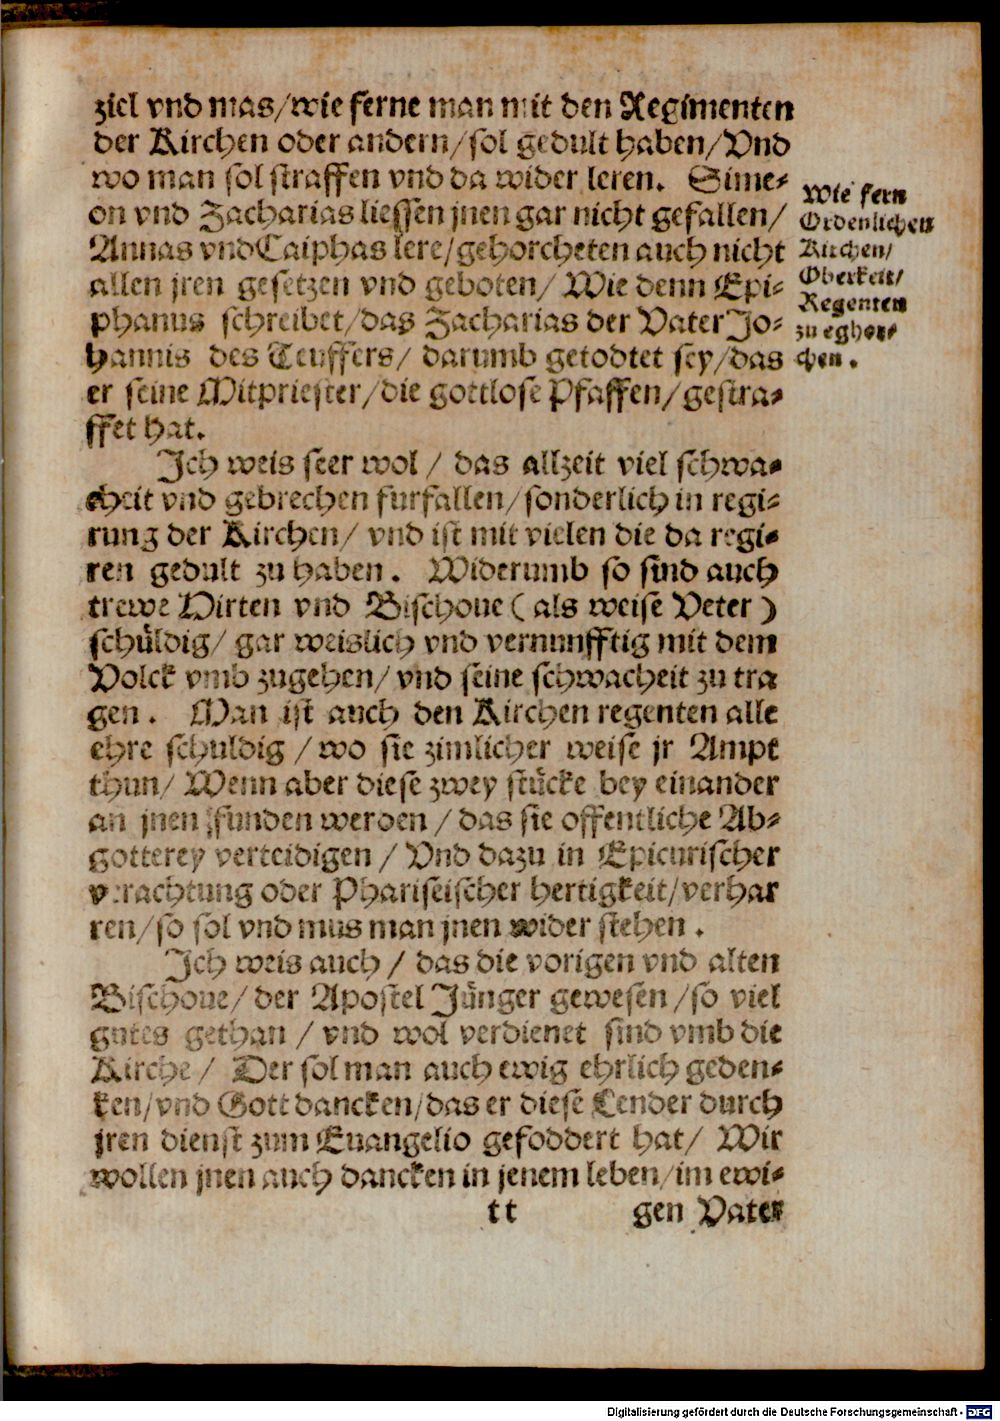 ziel vnd mas/wie ferne man mit den Regimenten
der Kirchen oder andern/sol gedult haben/Vnd
wo man sol straffen vnd da wider leren. Sime-
on vnd Zacharias liessen jnen gar nicht gefallen/
Annas vnd Caiphas lere/gehorcheten auch nicht
allen jren gesetzen vnd geboten/ Wie denn Epi-
phanus schreibet/das Zacharias der Vater Jo-
hannis des Teuffers/ darumb getodtet sey/das
er seine Mitpriester/die gottlose Pfaffen/gestra-
ffet hat.
Wie fern
Ordenlichen
Kirchen/
Oberkeit/
Regenten
zu eghor-
chen.
Ich weis seer wol / das allzeit viel schwa-
cheit vnd gebrechen furfallen/sonderlich in regi-
rung der Kirchen/ vnd ist mit vielen die da regi-
ren gedult zu haben. Widerumb so sind auch
trewe Hirten vnd Bischoue ( als weise Veter )
schüldig/ gar weislich vnd vernunfftig mit dem
Volck vmb zugehen/ vnd seine schwacheit zu tra
gen. Man ist auch den Kirchen regenten alle
ehre schuldig / wo sie zimlicher weise jr Ampt
thun/ Wenn aber diese zwey stücke bey einander
an jnen funden werden / das sie offentliche Ab-
gotterey verteidigen / Vnd dazu in Epicurischer
verachtung oder Phariseischer hertigkeit/verhar
ren/so sol vnd mus man jnen wider stehen.
Ich weis auch / das die vorigen vnd alten
Bischoue/ der Apostel Jünger gewesen /so viel
gutes gethan / vnd wol verdienet sind vmb die
Kirche/ Der sol man auch ewig ehrlich geden-
ken/vnd Gott dancken/das er diese Lender durch
jren dienst zum Euangelio gefoddert hat/ Wir
wollen jnen auch dancken in jenem leben/im ewi-
tt gen Vater
Digitalisierung gefördert durch die Deutsche Forschungsgemeinschaft - DFG